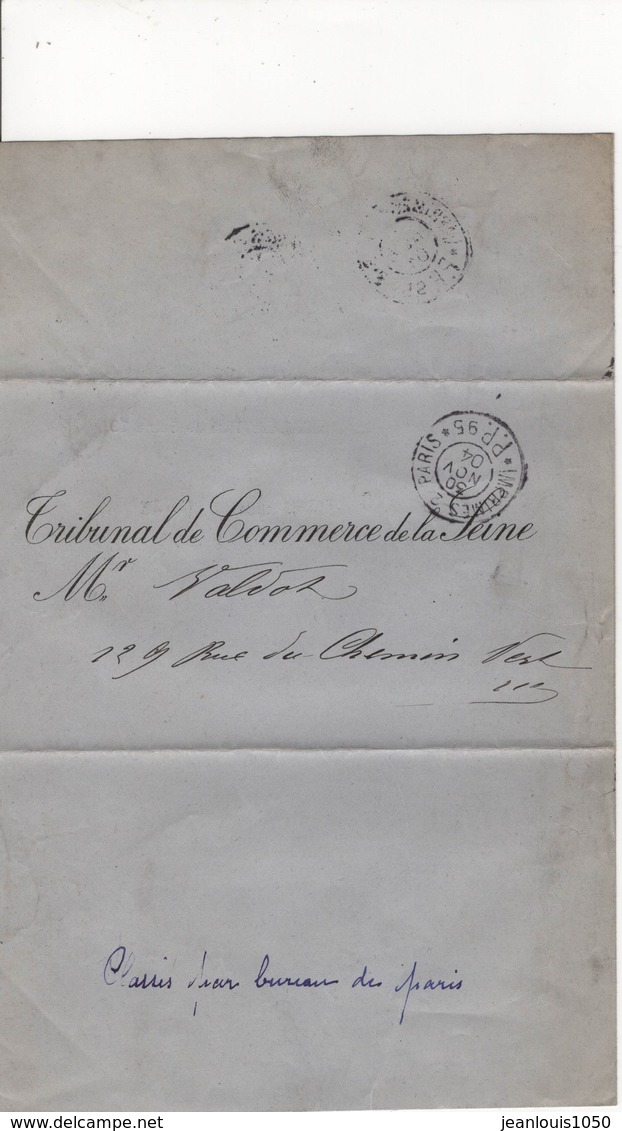 Tribunal de Commerce de la Seine
Mr Valdot
129 Rue du Chemin Vert
PARIS * P.P. 95 * IMPRIMÉS
NOV
04
Classés par bureau de Paris
www.delcampe.net
jeanlouis1050